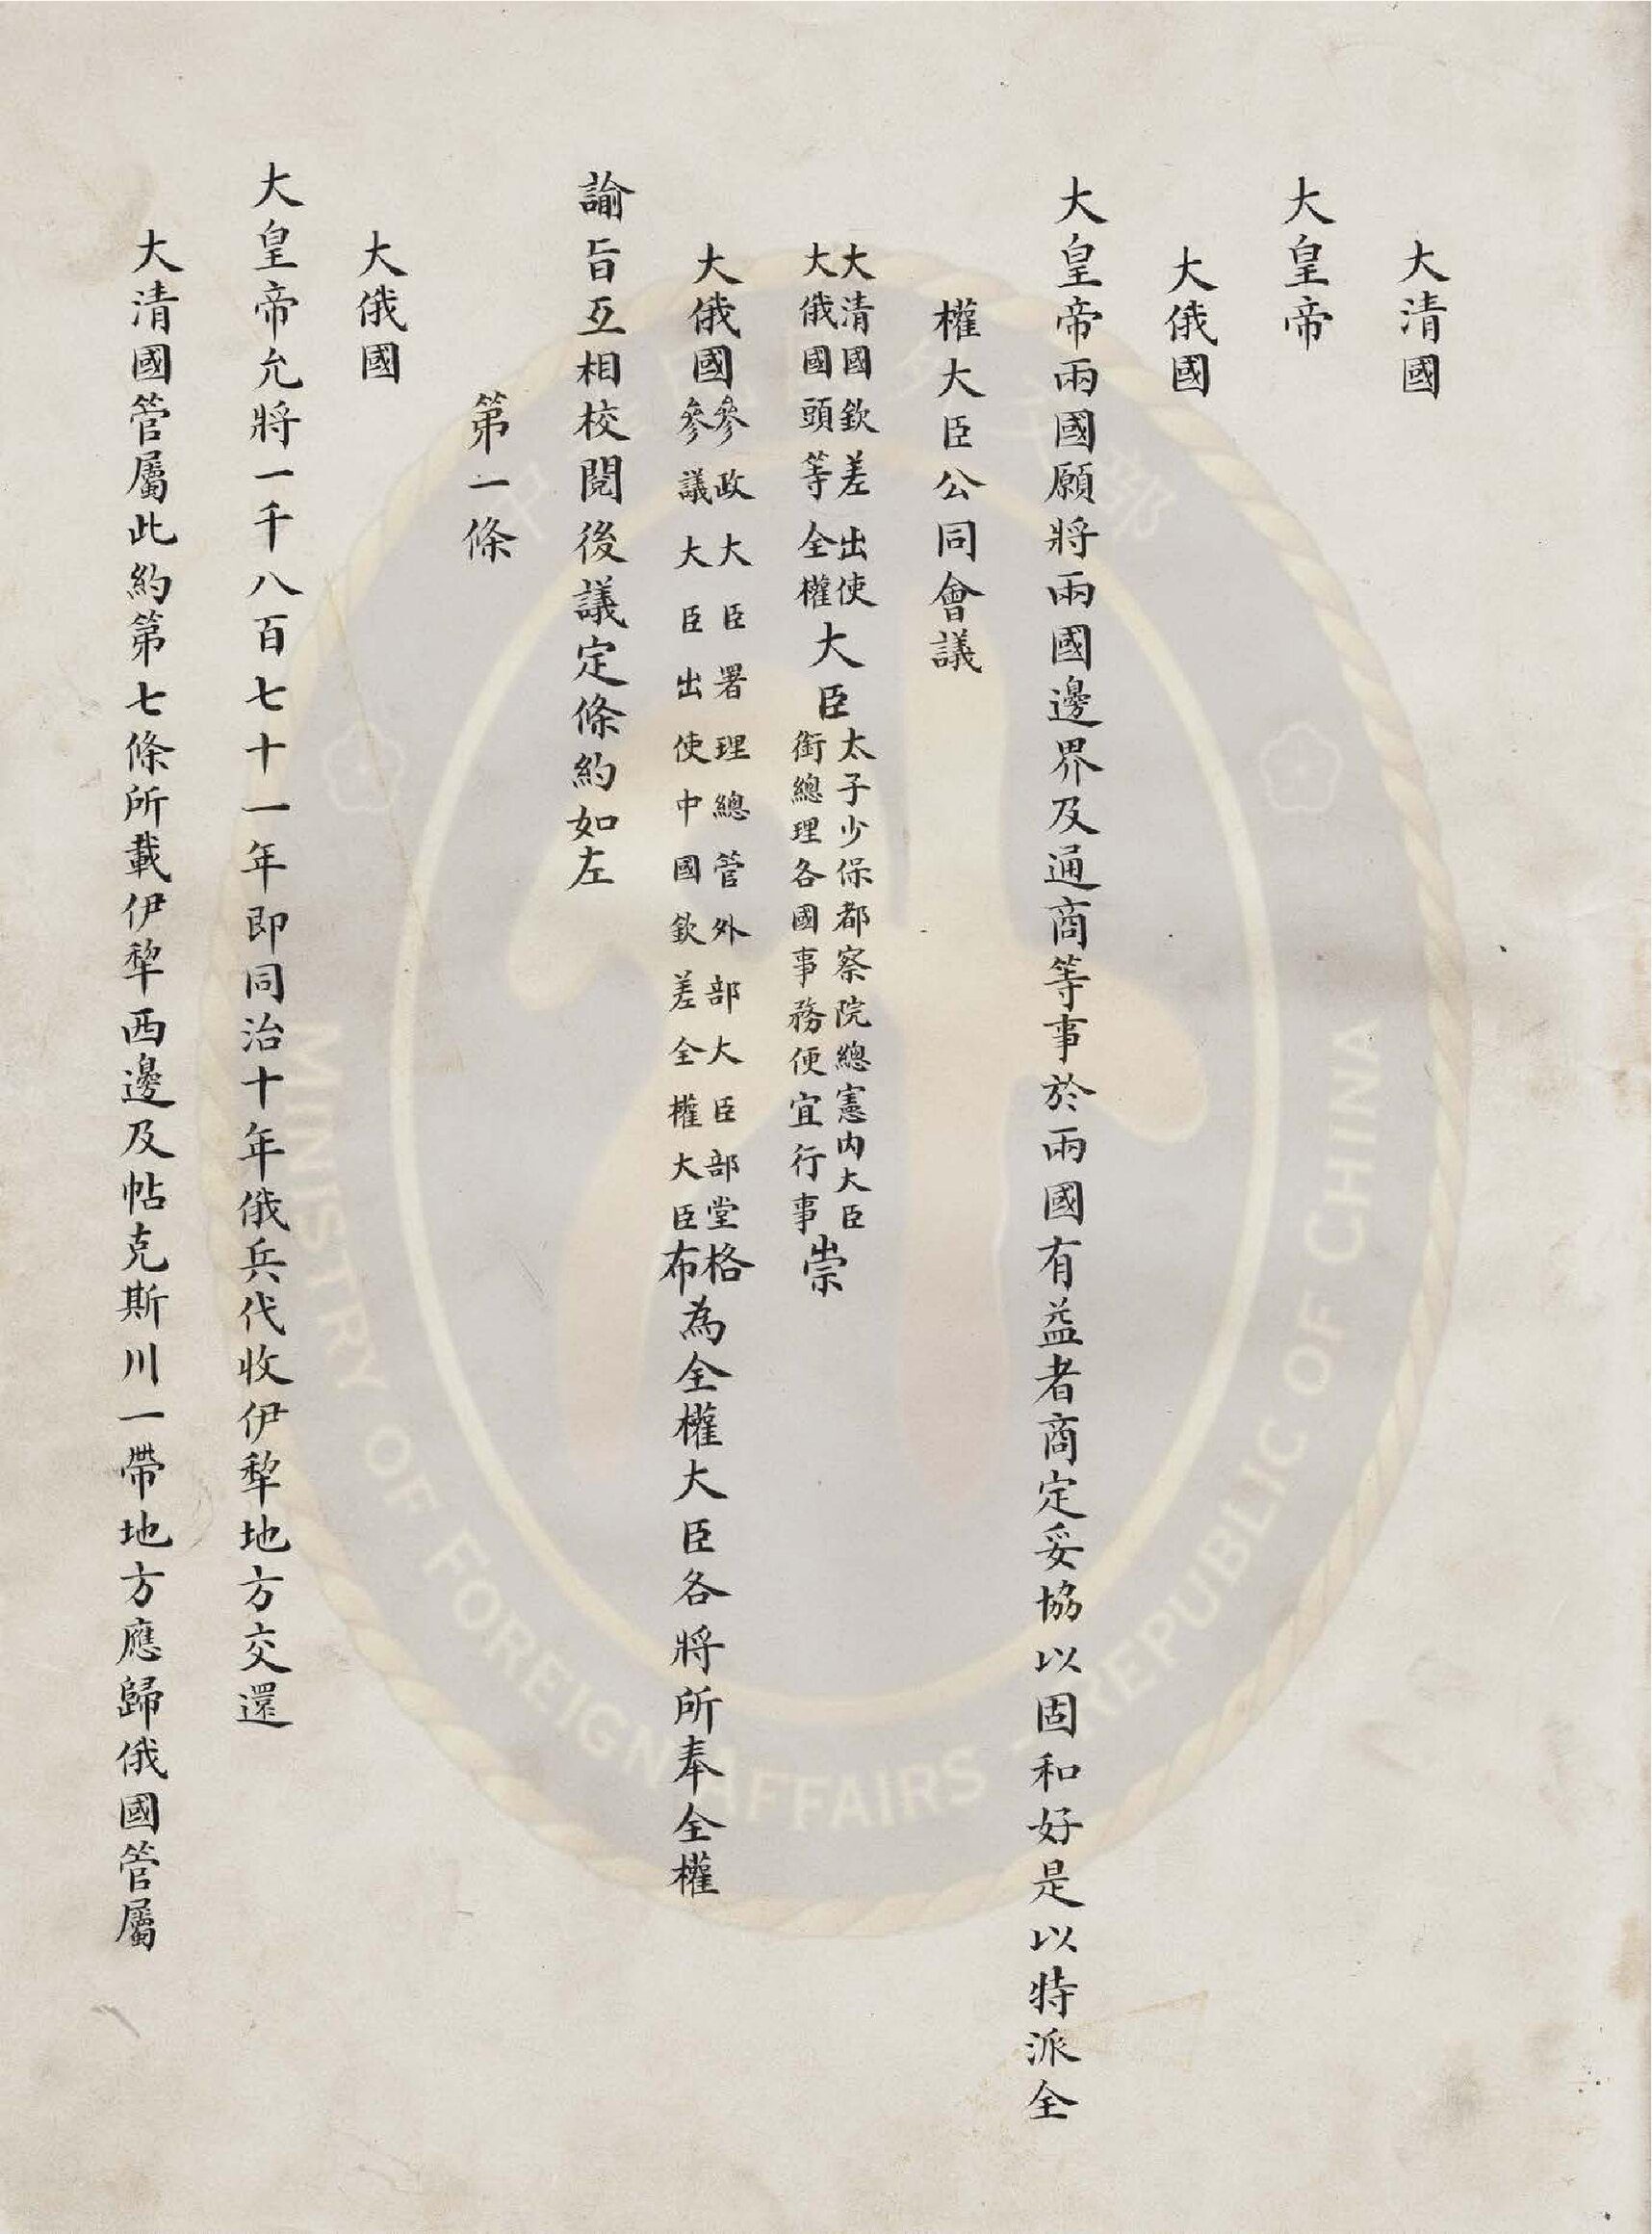 大清國
大皇帝
大俄國
大皇帝兩國願將兩國邊界及通商等事於兩國有益者商定妥協以固和好是以特派全
權大臣公同會議
大清國欽差出使
大俄國頭等全權
大臣
太子少保都察院總憲內大臣
銜總理各國事務便宜行事
崇
大俄國
參政大臣署理總管外部大臣部堂格
參議大臣出使中國欽差全權大臣布
為全權大臣各將所奉全權
諭旨互相校閱後議定條約如左
第一條
大俄國
大皇帝允將一千八百七十一年即同治十年俄兵代收伊犂地方交還
大清國管屬此約第七條所載伊犂西邊及帖克斯川一帶地方應歸俄國管屬
MINISTRY OF FOREIGN AFFAIRS - REPUBLIC OF CHINA